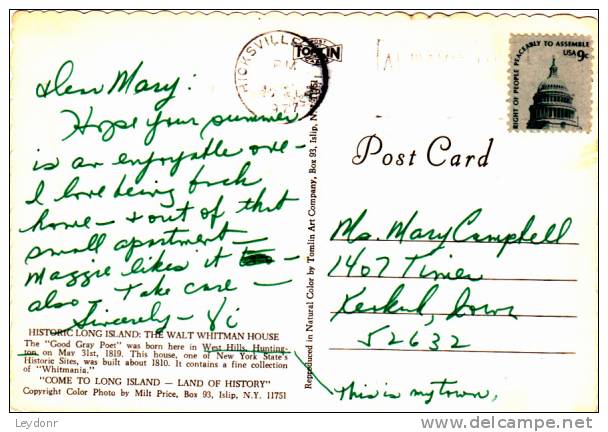 Dear Mary:
Hope your summer
is an enjoyable one -
I love being back
home - & out of that
small apartment -
Maggie likes it -
also - Take care -
Sincerely - Vi
HISTORIC LONG ISLAND: THE WALT WHITMAN HOUSE
The "Good Gray Poet" was born here in West Hills, Hunting-
ton on May 31st, 1819. This house, one of New York State's
Historic Sites, was built about 1810. It contains a fine collection
of "Whitmania."
"COME TO LONG ISLAND — LAND OF HISTORY"
Copyright Color Photo by Milt Price, Box 93, Islip, N.Y. 11751
Reproduced in Natural Color by Tomlin Art Company, Box 93, Islip, N.Y. 11751
TOMLIN
HICKSVILLE
PM
1977
RIGHT OF PEOPLE PEACEABLY TO ASSEMBLE
USA 9c
Post Card
Ms. Mary Campbell
1407 Timea
Keokuk, Iowa
52632
This is my town,
Leydonr
www.delcampe.net